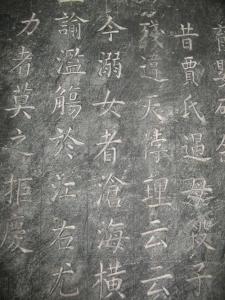 昔賈氏過母殺子
殘逆天悖理云云
今溺女者滄海橫
諭濫觴於江右尤
力者莫之拒慶